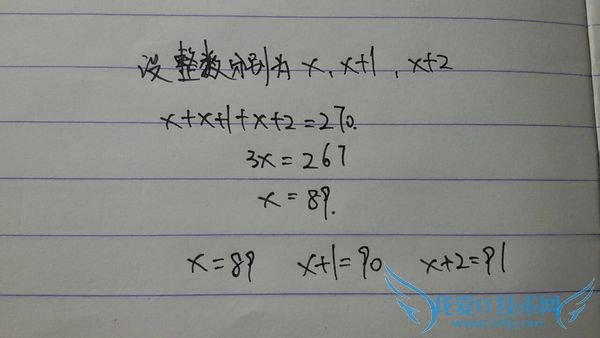 设整数分别为 x, x+1, x+2
x+x+1+x+2=270.
3x=267
x=89.
x=89 x+1=90 x+2=91
我爱IT技术网